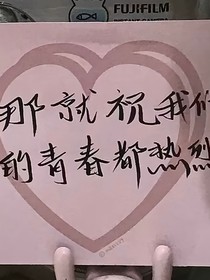 FUJIFILM
那就祝我们
的青春都热烈